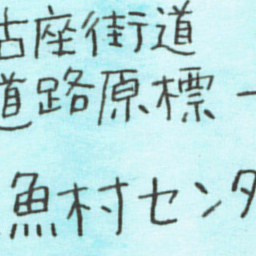 古座街道
道路原標 ー
魚村センタ